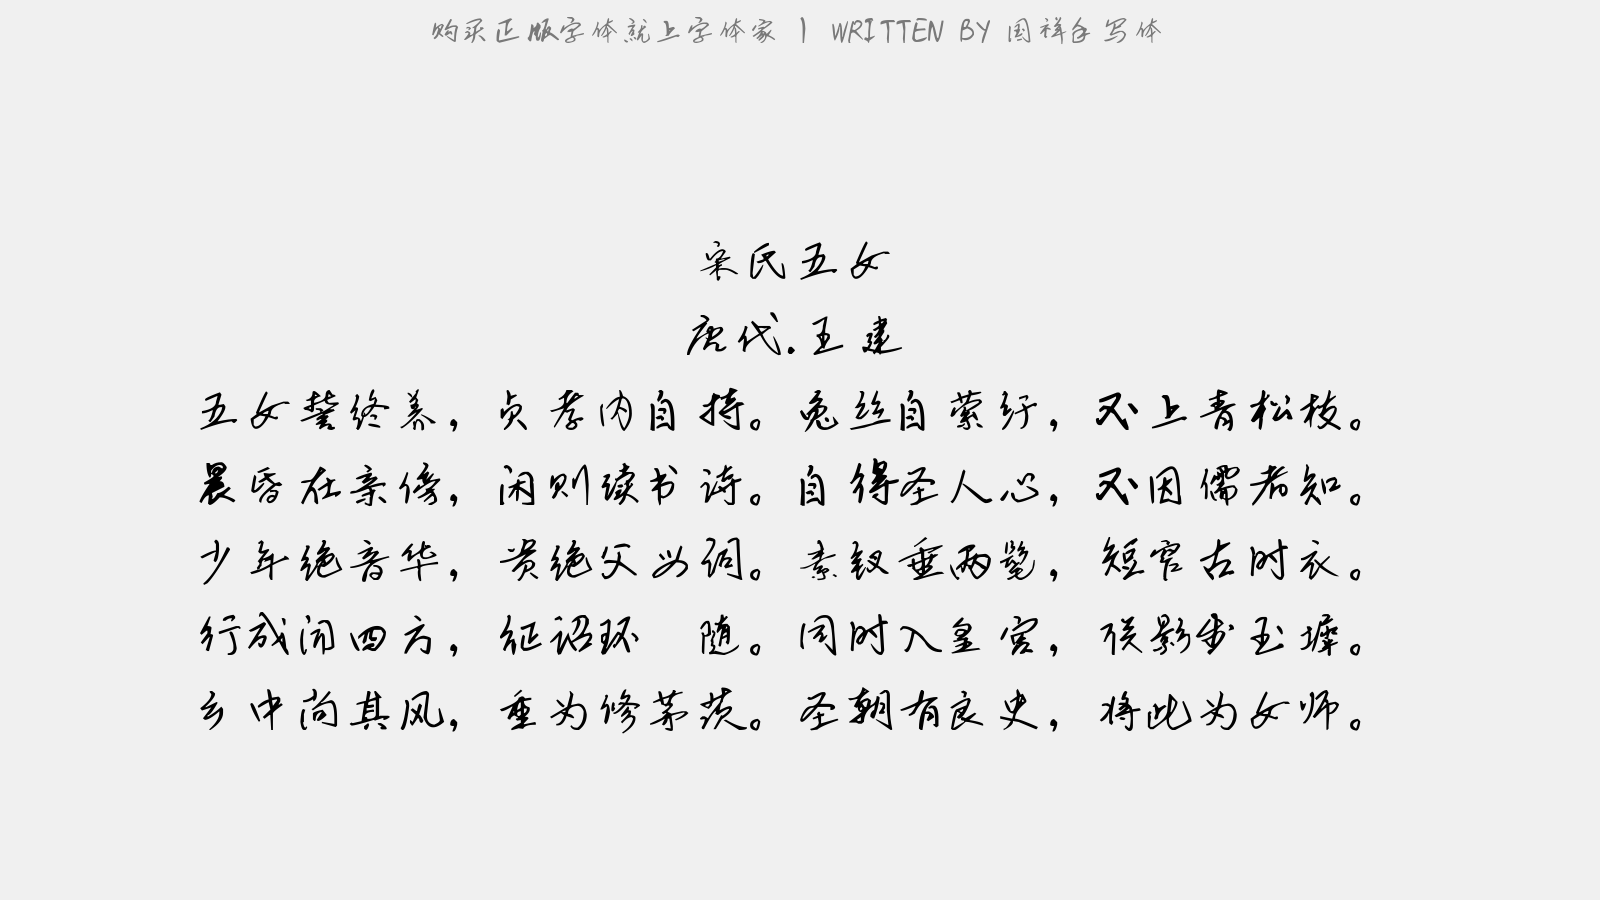 购买正版字体就上字体家 | WRITTEN BY 国祥手写体
宋氏五女
唐代.王建
五女誓终养，贞孝内自持。兔丝自萦纡，不上青松枝。
晨昏在亲傍，闲则读书诗。自得圣人心，不因儒者知。
少年绝音华，贵绝父母词。素钗垂两髦，短窄古时衣。
行成闻四方，征诏环 随。同时入皇宫，联影步玉墀。
乡中尚其风，重为修茅茨。圣朝有良史，将此为女师。